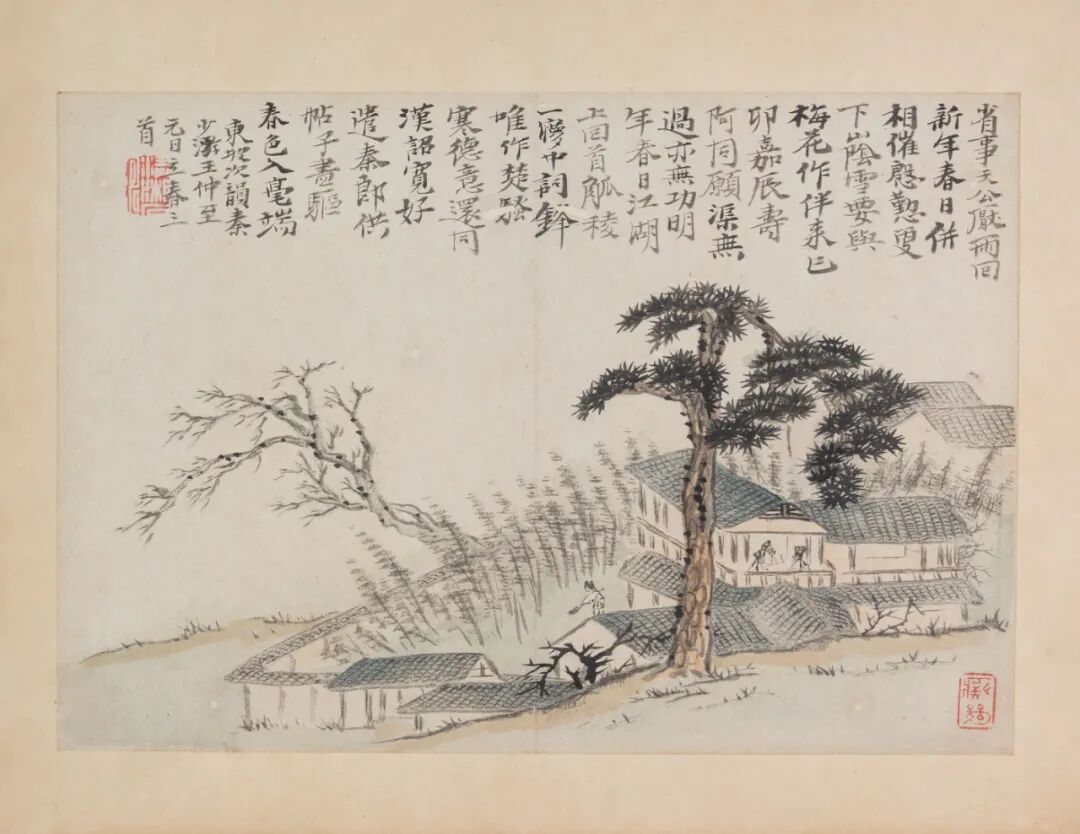 省事天公厭兩回
新年春日併
相催慇懃更
下山陰雪要與
梅花作伴来巳
卯嘉辰壽
阿同願渠無
過亦無功明
年春日江湖
上回首觚稜
一夢中詞鋒
唯作楚騷
寒德意還同
漢詔寬好
遣秦郎供
帖子盡驅
春色入毫端
東坡次韻秦
少游王仲至
元日立春三
首